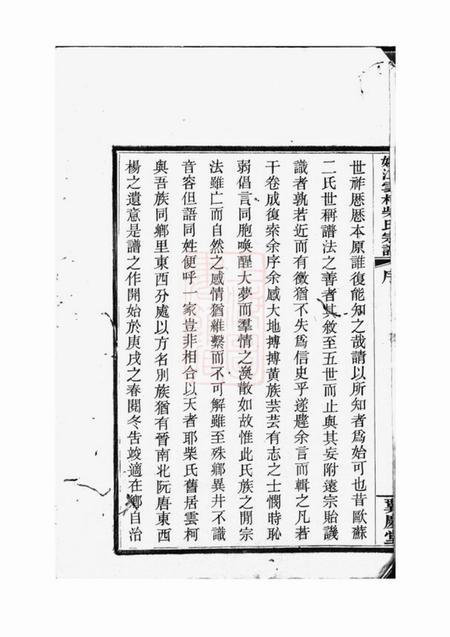 姚江雲柯柴氏宗譜
序
世祚厯厯本原誰復能知之哉請以所知者爲始可也昔歐蘇
二氏世稱譜法之善者其敘至五世而止與其妄附遠宗貽譏
識者孰若近而有徵猶不失爲信史乎遂韙余言而輯之凡若
干卷成復索余序余感大地搏搏黃族芸芸有志之士憫時恥
弱倡言同胞喚醒大夢而羣情之渙散如故惟此氏族之閒宗
法雖亡而自然之感情猶維繫而不可解雖至殊鄉異井不識
音容但語同姓便呼一家豈非相合以天者耶柴氏舊居雲柯
與吾族同鄉里東西分處以方名別族猶有晉南北阮唐東西
楊之遺意是譜之作開始於庚戌之春閱冬告竣適在鄉自治